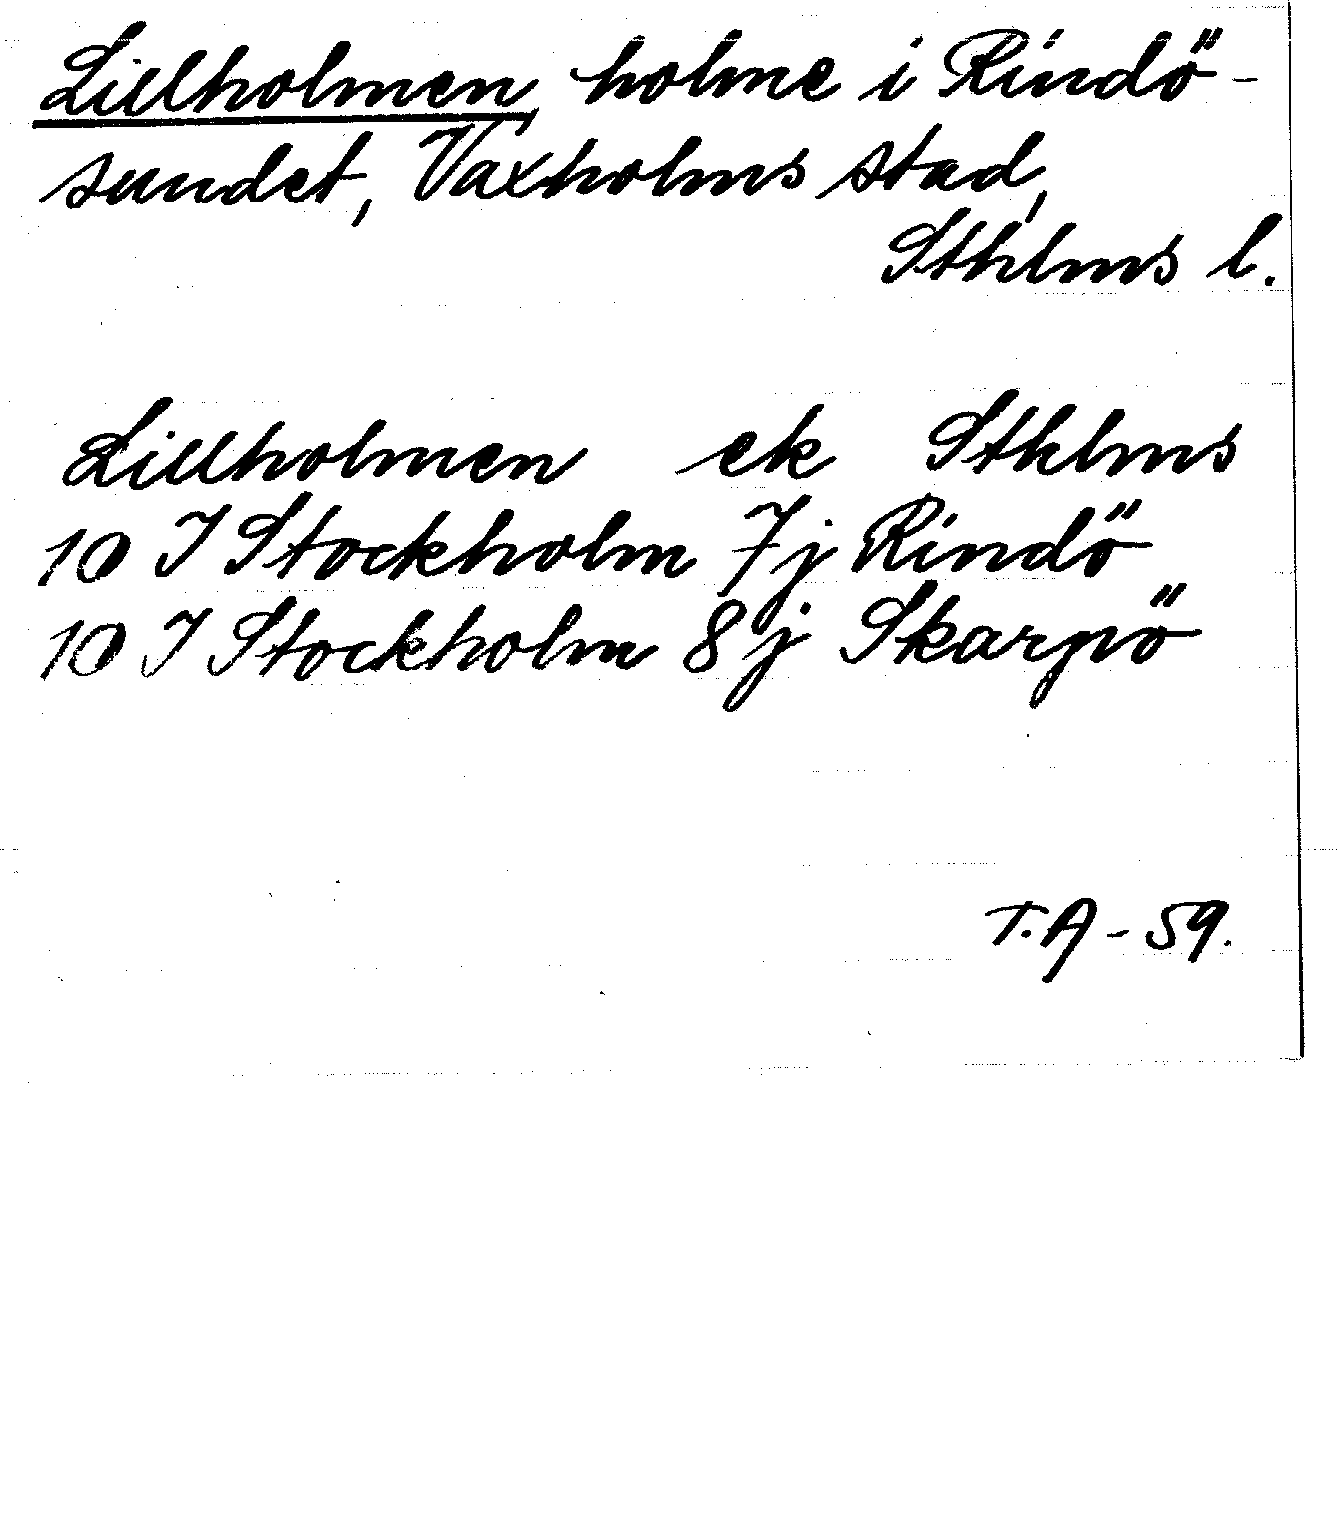 Lillholmen, holme i Rindö-
sundet, Vaxholms stad,
Sthlms l.
Lillholmen ek Sthlms
10 I Stockholm 7j Rindö
10 I Stockholm 8j Skarpö
T.A - 59.